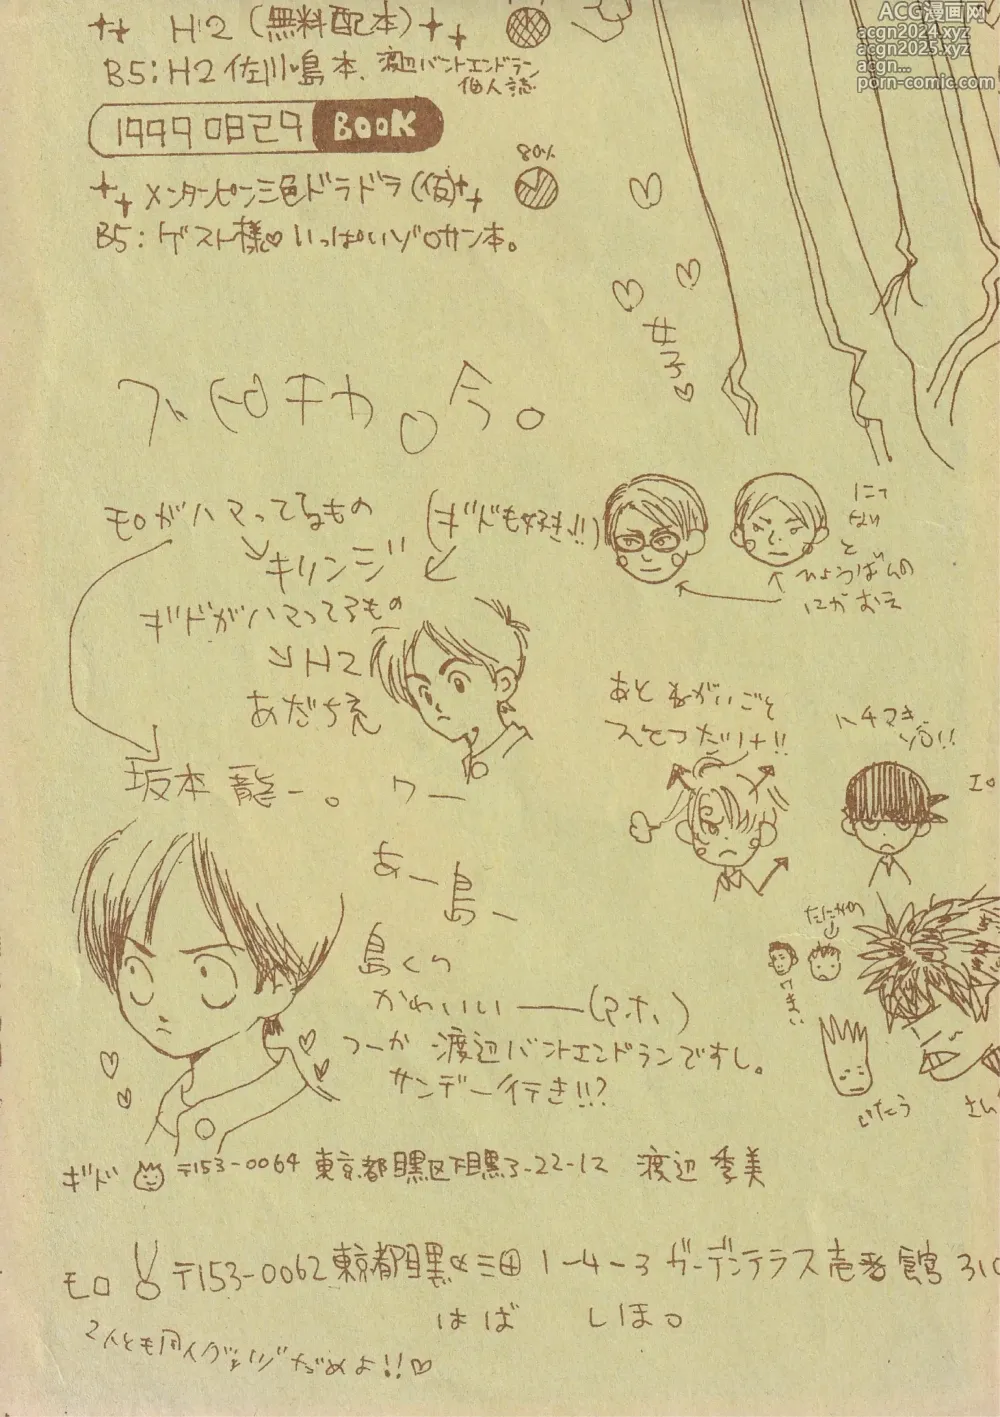 H2 (無料配本)
B5:H2 佐川・島本、渡辺バントエンドラン
個人誌
1999 0829 BOOK
80%
メンタンピン三色ドラドラ(仮)
B5:ゲスト様♡いっぱいゾロサン本。
女子♡
今。
モロがハマってるもの
(ギドも好き!!)
キリンジ
ギドがハマってるもの
H2
あだち充
坂本龍一。
にてないと
ひょうばんの
にがおえ
あとねがいごと
ハチマキ
ゾロ!!
あー島ー
島くん
かわいい――(アホ)
つーか 渡辺バントエンドランですし。
サンデー行き!!?
ギド 〒153-0064 東京都目黒区下目黒3-22-12 渡辺 季美
モロ 〒153-0062 東京都目黒区三田1-4-3 ガーデンテラス壱番館 310
はば しほ。
ACG漫画网
acgn2024.xyz
acgn2025.xyz
acgn...
porn-comic.com